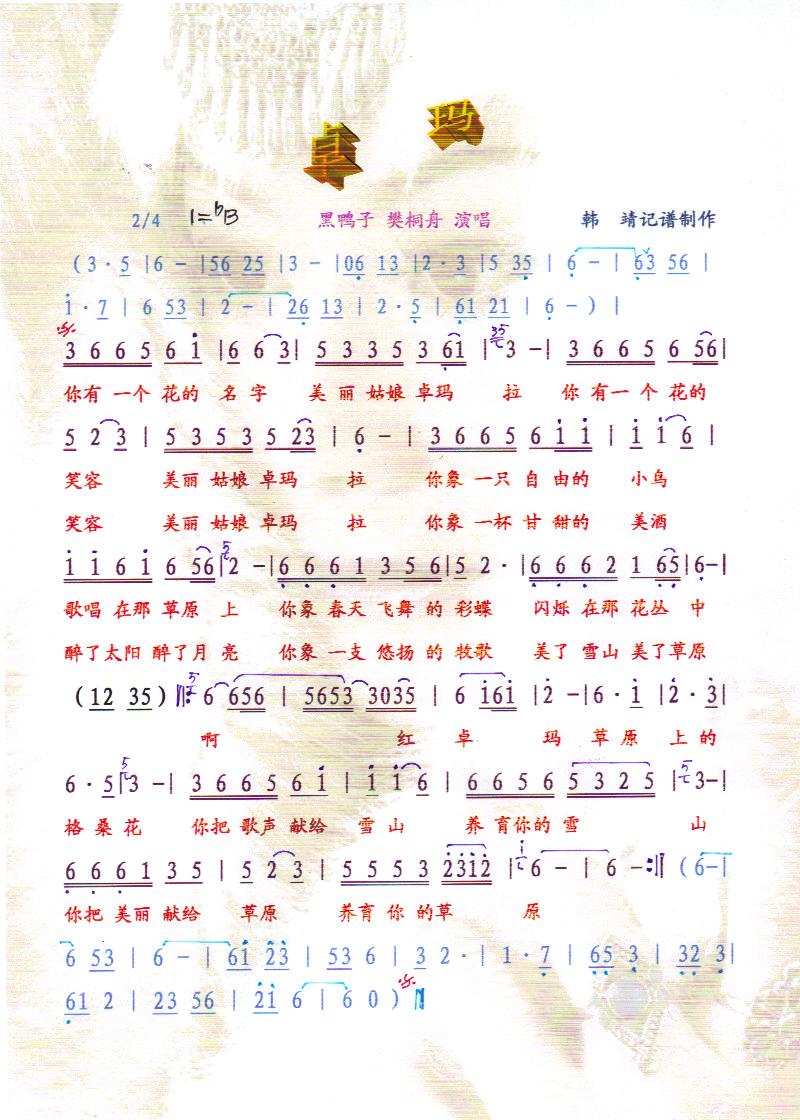 卓 玛
2/4 1=♭B 黑鸭子 樊桐舟 演唱 韩 靖记谱制作
(3·5 |6 - |56 25 |3 - |06 13 |2·3 |5 35 |6 - |63 56 |
1·7 | 6 53 | 2 - | 26 13 | 2·5 | 61 21 | 6 - ) |
3 6 6 5 6 1 |6 6 3| 5 3 3 5 3 61 | 35 3 -| 3 6 6 5 6 56|
你有 一个 花的 名字 美 丽 姑娘 卓玛 拉 你 有一 个 花的
5 2 3 | 5 3 5 3 5 23 | 6 - | 3 6 6 5 6 1 1 | 1 1 6 |
笑容 美丽 姑娘 卓玛 拉 你象 一只 自由的 小鸟
笑容 美丽 姑娘 卓玛 拉 你象 一杯 甘甜的 美酒
1 1 6 1 6 56| 5 2 -|6 6 6 1 3 5 6|5 2·|6 6 6 2 1 65|6-|
歌唱 在那 草原 上 你象 春天 飞舞 的 彩蝶 闪烁 在那 花丛 中
醉了太阳 醉了月 亮 你象 一支 悠扬 的 牧歌 美了 雪山 美了草原
(12 35) 𝄆 5 6 656 | 5653 3035 | 6 161 |2 - |6·1 |2·3|
啊 红 卓 玛 草 原 上 的
6·5| 5 3 -| 3 6 6 5 6 1 | 1 1 6 | 6 6 5 6 5 3 2 5 | 5 3-|
格 桑 花 你把 歌声 献给 雪 山 养 育你 的 雪 山
6 6 6 1 3 5 | 5 2 3 | 5 5 5 3 2312 | 1 6 - | 6 - 𝄇 (6-|
你把 美丽 献给 草原 养育 你 的草 原
6 53 | 6 - | 61 23 | 53 6 | 3 2· | 1·7 | 65 3 | 32 3|
61 2 | 23 56 | 21 6 | 6 0 )